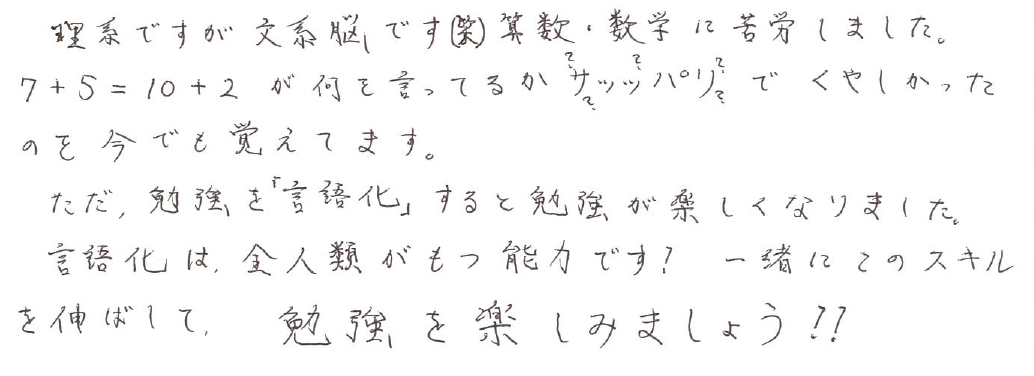 理系ですが文系脳です(笑)算数・数学に苦労しました。
7+5=10+2 が何を言ってるかサッッパリでくやしかった
のを今でも覚えてます。
ただ,勉強を「言語化」すると勉強が楽しくなりました。
言語化は,全人類がもつ能力です! 一緒にこのスキル
を伸ばして, 勉強を楽しみましょう!!